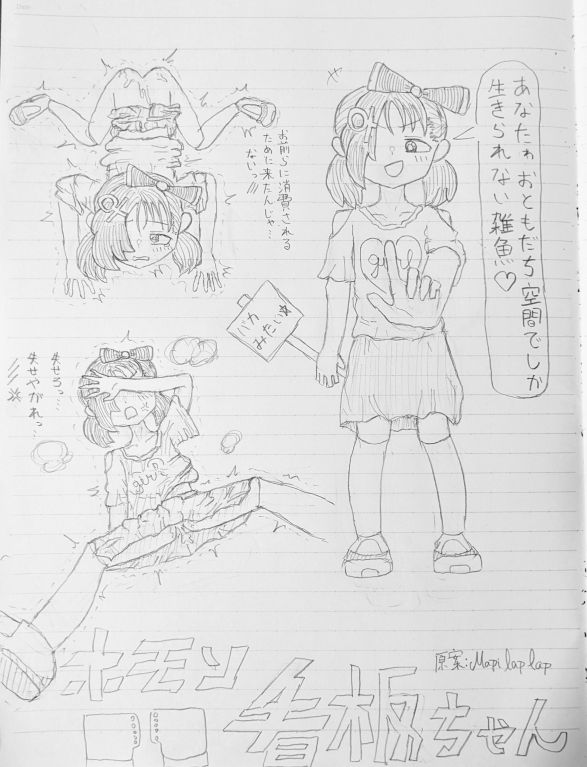 あなたゎおともだち空間でしか
生きられない雑魚♡
お前らに消費される
ために来たんじゃ…
ないっ//
バカ
みたい☆
girl
失せろっ…
失せやがれっ…
girl
原案:Mapi lap lap
ホモソ
看板ちゃん